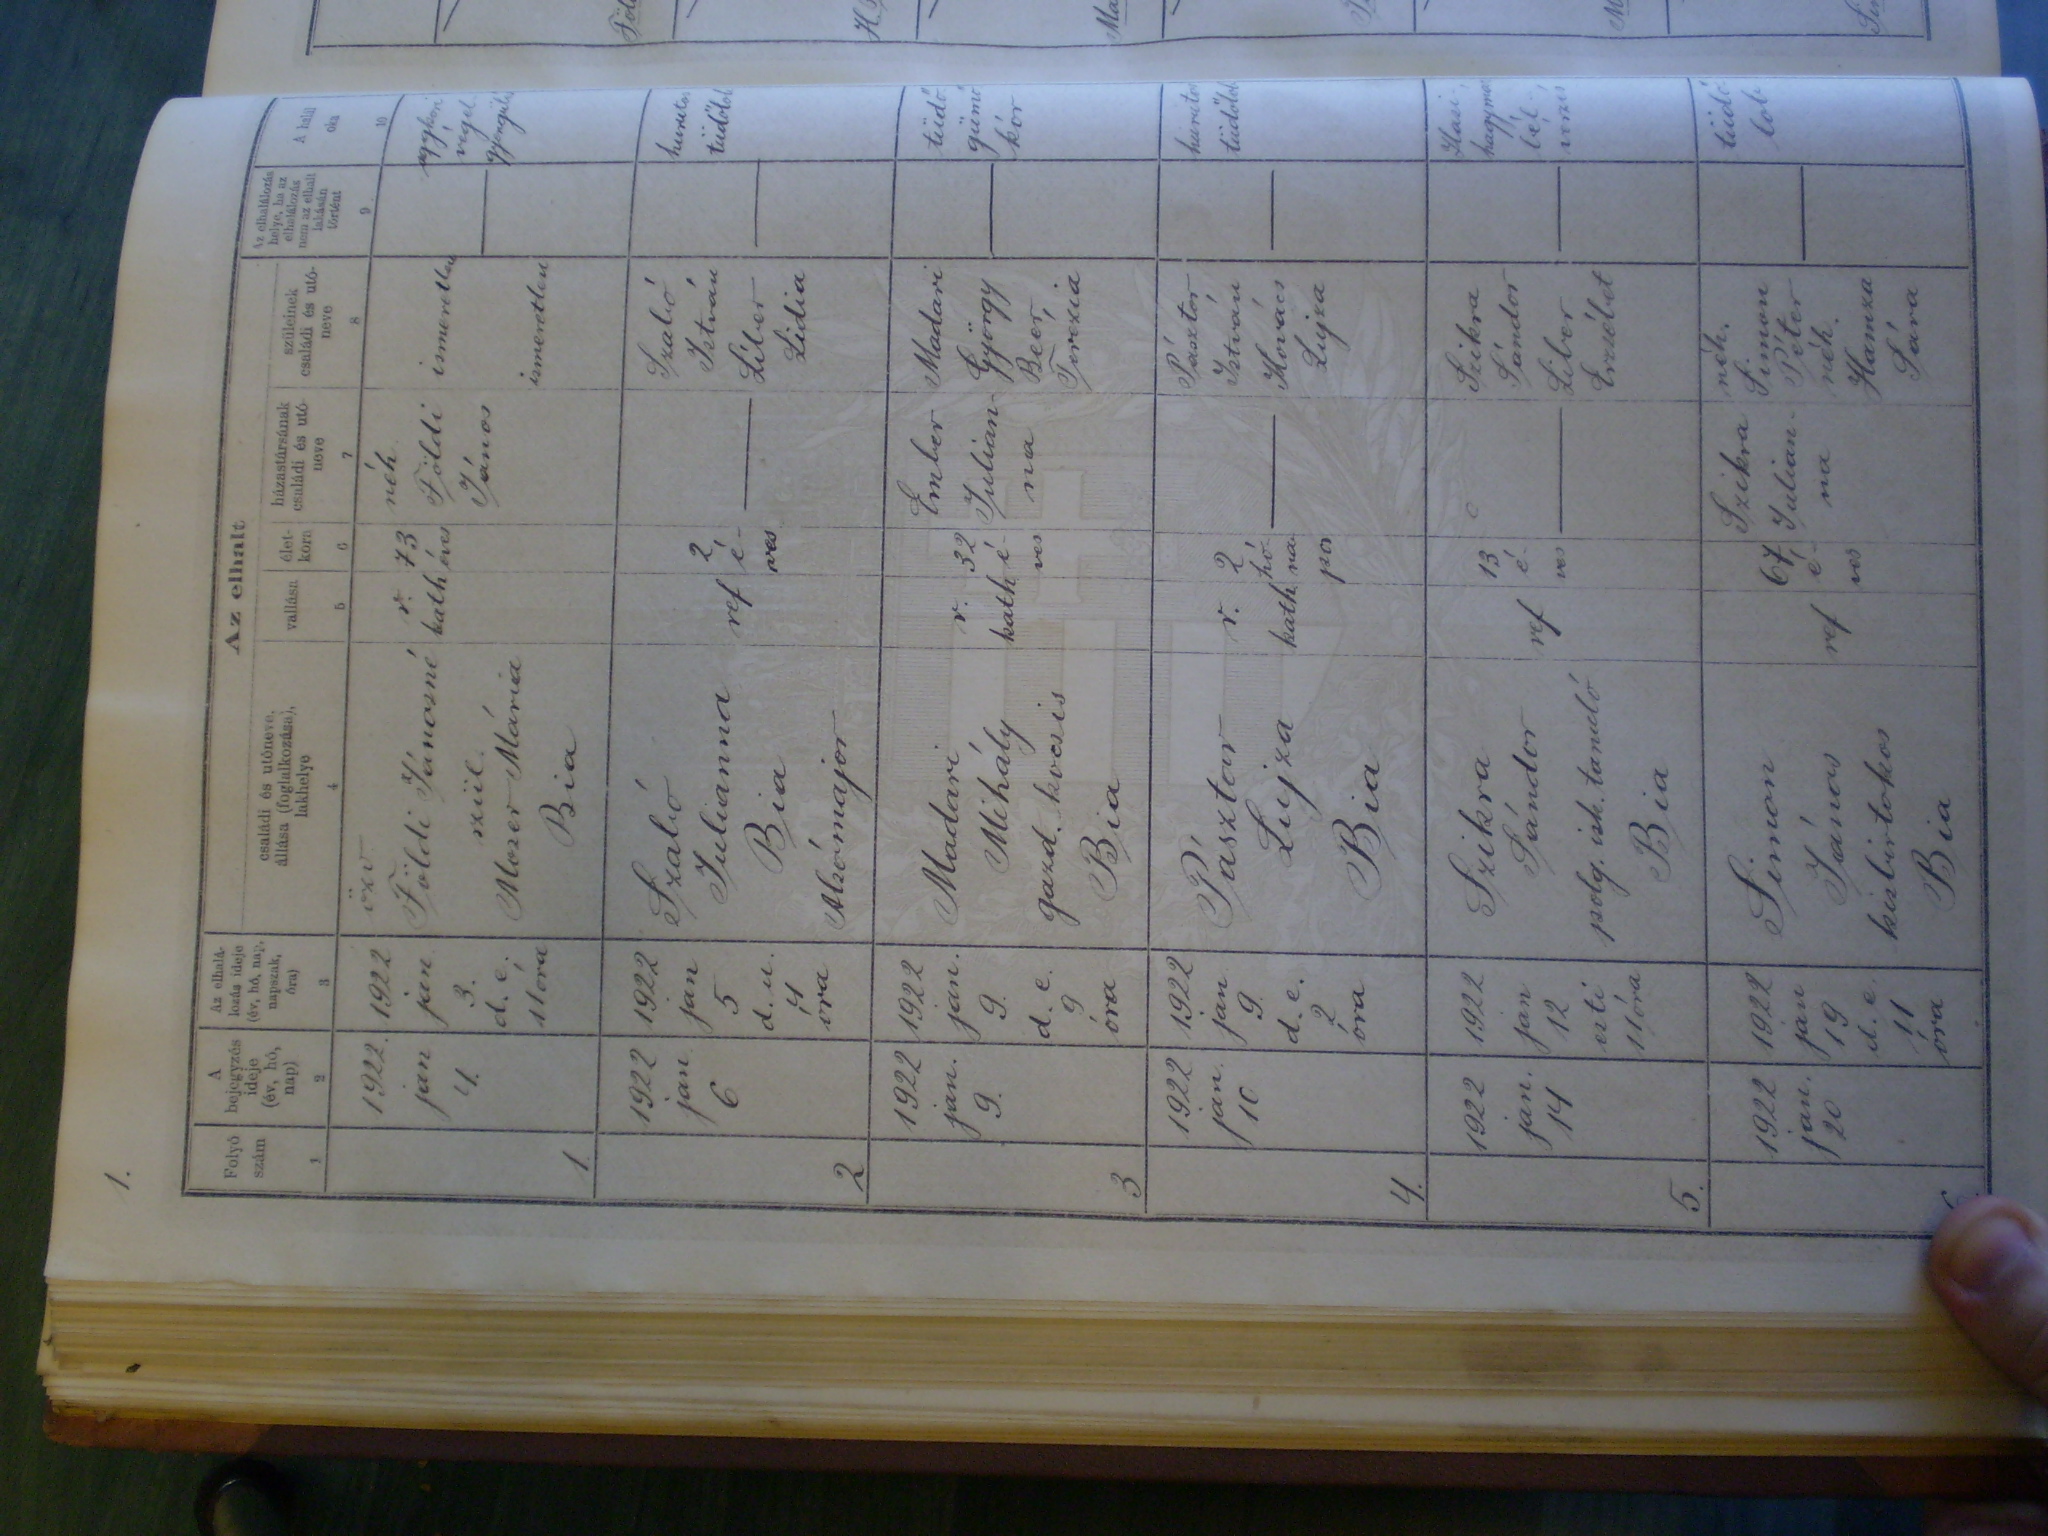 1.
Az elhalt
Folyó szám
A bejegyzés ideje (év, hó, nap)
Az elhalálozás ideje (év, hó, nap, napszak, óra)
családi és utóneve, állása (foglalkozása), lakhelye
vallása
élet-kora
házastársának családi és utóneve
szüleinek családi és utóneve
Az elhalálozás helye, ha az elhalálozás nem az elhalt lakásán történt
A halál oka
1 2 3 4 5 6 7 8 9 10
1.
1922. jan 4.
1922 jan 3. d. e. 11 óra
özv
Földi Jánosné
szül.
Mozer Mária
Bia
r. kath
73 éves
néh. Földi János
ismeretlen
ismeretlen
aggkori végel gyengülés
2
1922 jan 6
1922 jan 5 d. u. 4 óra
Szabó
Julianna
Bia
Alsómajor
ref
2 é-ves
Szabó István
Liber Lidia
hurutos tüdőlob
3
1922 jan. 9.
1922 jan. 9. d. e. 9 óra
Madari
Mihály
gazd. kocsis
Bia
r. kath
32 é-ves
Ember Julian-na
Madari György
Beer Terézia
tüdő gümő kór
4.
1922 jan. 10
1922 jan 9. d. e. 2 óra
Pásztor
Lujza
Bia
r. kath
2 hó-na po
Pásztor István
Kovács Lujza
hurutos tüdőlob
5.
1922 jan. 14
1922 jan 12 esti 11 óra
Szikra
Sándor
polg. isk. tanuló
Bia
ref
13 é-ves
Szikra Sándor
Liber Erzsébet
Hasi-hagymáz
bél-
vérzés
1922 jan. 20
1922 jan 19 d. e. 11 óra
Simon
János
kisbirtokos
Bia
ref
67 é-ves
Szikra Julian-na
néh. Simon Péter
néh. Hamza Sára
tüdő lob